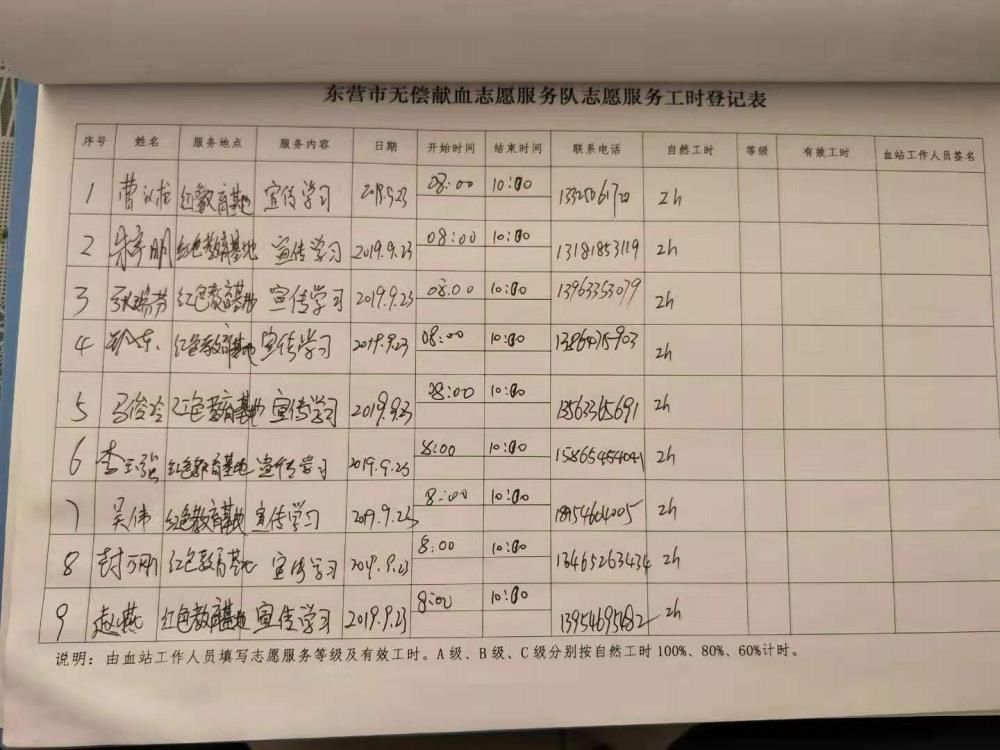 东营市无偿献血志愿服务队志愿服务工时登记表
序号 姓名 服务地点 服务内容 日期 开始时间 结束时间 联系电话 自然工时 等级 有效工时 血站工作人员签名
1 曹 红教育基地 宣传学习 08:00 10:00 2h
2 明 红色教育基地 宣传学习 2019.9.23 08:00 10:00 13181853119 2h
3 张瑞芳 红色教育基地 宣传学习 2019.9.23 08:00 10:00 13963353079 2h
4 红色教育基地 宣传学习 2019.9.23 08:00 10:00 2h
5 马俊玲 红色教育基地 宣传学习 2019.9.23 08:00 10:00 13563365691 2h
6 李玉强 红色教育基地 宣传学习 2019.9.23 8:00 10:00 15865454041 2h
7 吴伟 红色教育基地 宣传学习 2019.9.23 8:00 10:00 18954604005 2h
8 封 刚 红色教育基地 宣传学习 2019.9.23 8:00 10:00 13465263434 2h
9 赵燕 红色教育基地 宣传学习 2019.9.23 8:00 10:00 2h
说明：由血站工作人员填写志愿服务等级及有效工时。A级、B级、C级分别按自然工时100%、80%、60%计时。